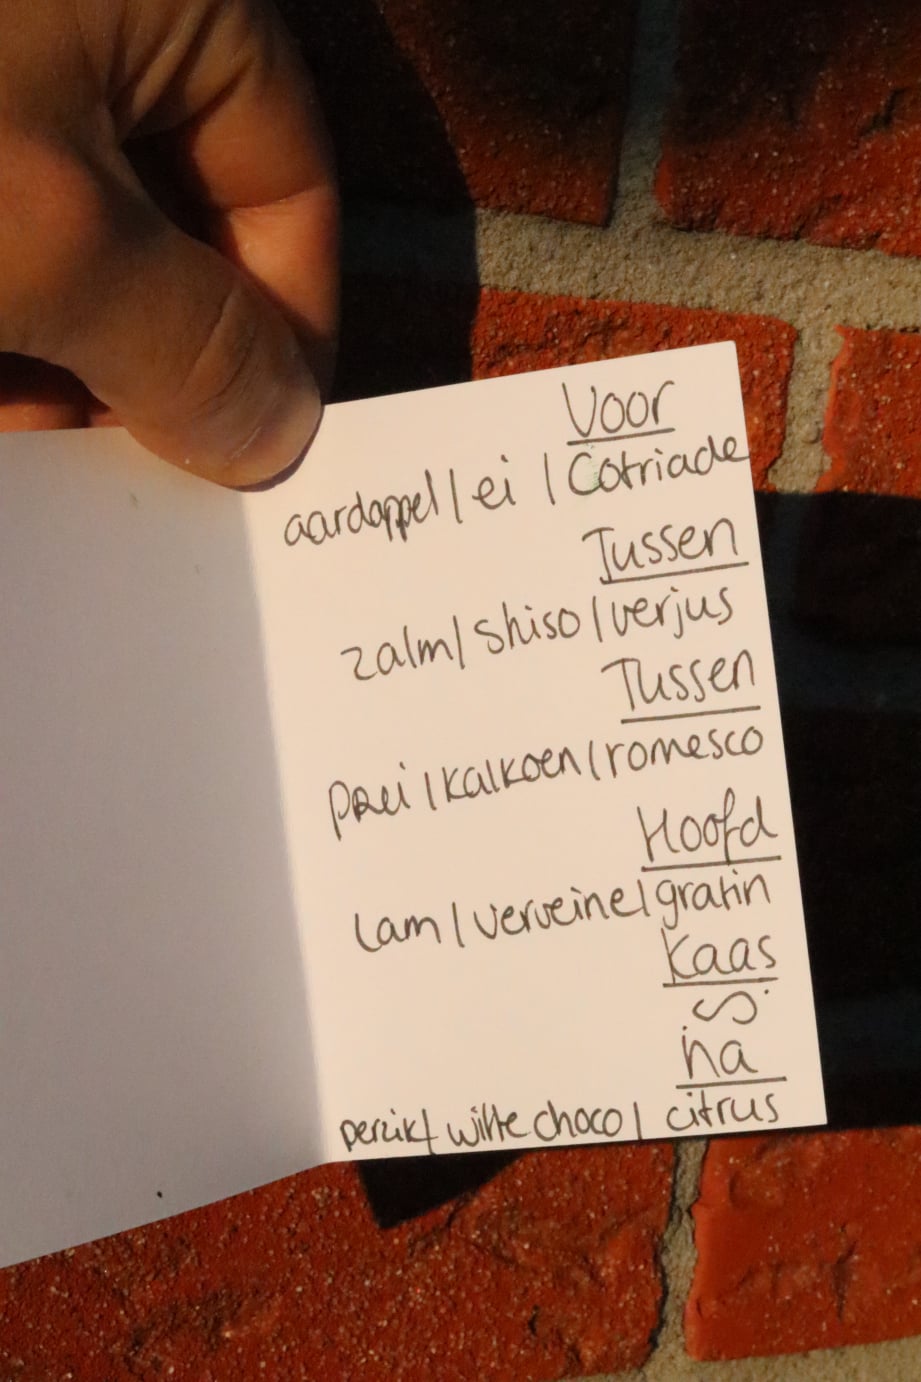 Voor
aardappel / ei / Cotriade
Tussen
zalm / shiso / verjus
Tussen
prei / kalkoen / romesco
Hoofd
lam / verveine / gratin
Kaas
na
perzik / witte choco / citrus